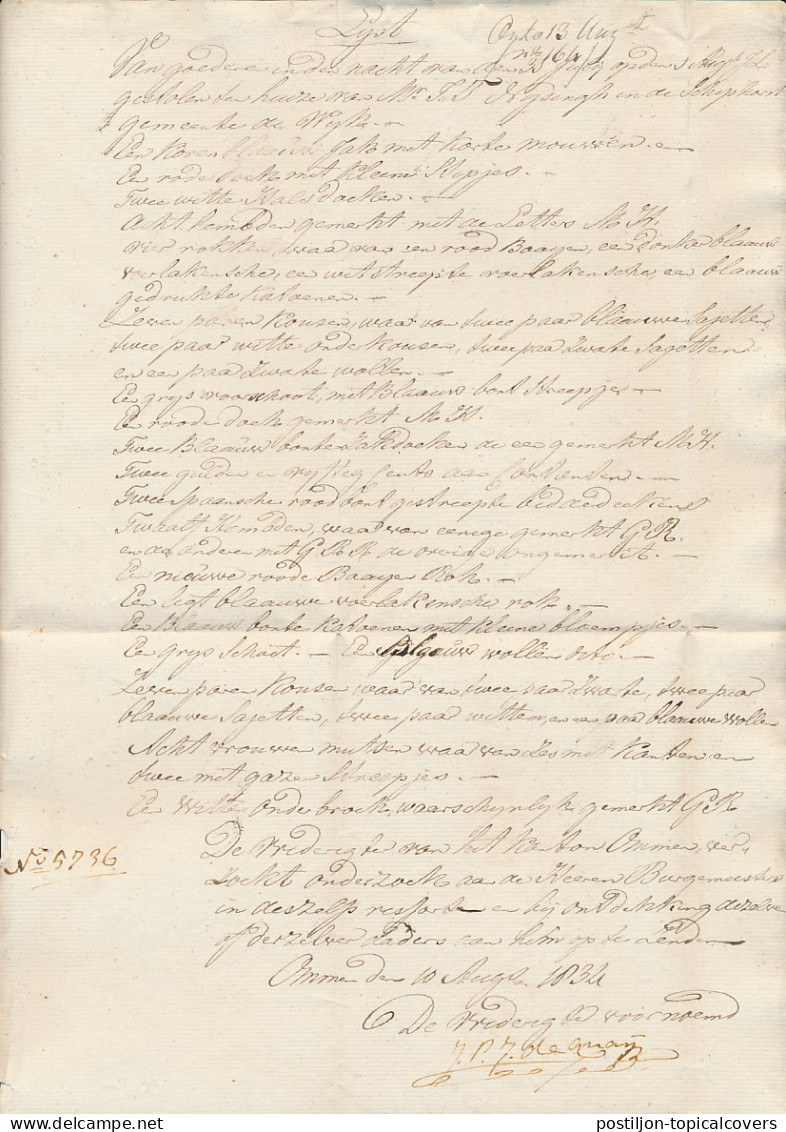 Lyst
Ontv 13 Aug
Van goederen in den nacht van den 31 July op den 1 Aug
gestolen ten huize van Mr in de Schiphorst
gemeente de Wyk. –
Een Koren blaauw Jak met Korte mouwen. –
Een rode doek met Kleine Stipjes. –
Twee witte Halsdoeken. –
Acht hembden gemerkt met de Letters M. H.
vier rokken, waar van een rood Baayen, een donker blaauw
voerlakensche, een wit streepte voerlakensche, een blaauw
gedrukte Katoenen. –
Zeven paren Kousen, waar van twee paar blaauwe Sajetten,
twee paar witte onderkousen, twee paar Zwarte Sagetten
en een paar Zwarte wollen. –
Een grys voorschoot, met Blaauw bont Streepjes –
Een roode doek gemerkt M. H.
Twee Blaauw bonte Zakdoeken de een gemerkt M. H.
Twee gulden en vyftig Cents aan Contanten. –
Twee Spaansche rood bont gestreepte beddedeekens
Twaalf Hembden, waar van eenige gemerkt G. R.
en de anderen met G R R de overige Ongemerkt. –
Een nieuwe roode Baayen Rok. –
Een ligt blaauwe voerlakensche rok. –
Een Blaauw bonte Katoenen met Kleine bloempjes. –
Een grys Schort. – Een wollen dito. –
Zeven paren Kousen waar van twee paar Zwarte, twee paar
blaauwe Sajetten, twee paar witten, en een paar blaauwe wollen
Acht vrouwen mutsen waar van Zes met Kanten en
twee met gaze Streepjes. –
Een Witte onderbroek, waarschynlyk gemerkt G R
De Vrederegter van het Kanton Ommen, ver-
No 5736
zoekt onderzoek aan de Heeren Burgemeesters
in deszelfs ressorte en bij ontdekking dezelve
of derzelver daders aan hem op te Zenden
Ommen den 10 Aug 1834
De Vrederegter voornoemd
J. P. J. de Quaij
postiljon-topicalcovers
postiljon-topicalcovers